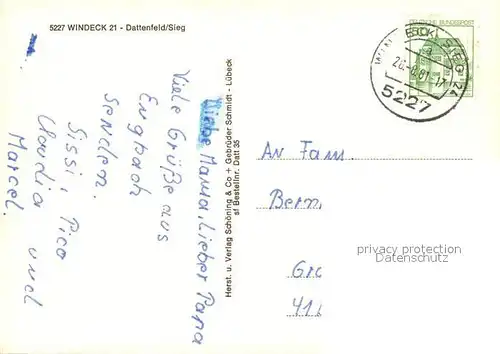 5227 WINDECK 21 - Dattenfeld/Sieg
Liebe Mama, Lieber Papa
Viele Grüße aus
Engbach
senden.
Sissi, Pico
Claudia und
Marcel.
Herst. u. Verlag Schöning & Co + Gebrüder Schmidt - Lübeck
st Bestellnr. Datt 35
DEUTSCHE BUNDESPOST
5227
An Fam.
Bern
privacy protection
Datenschutz